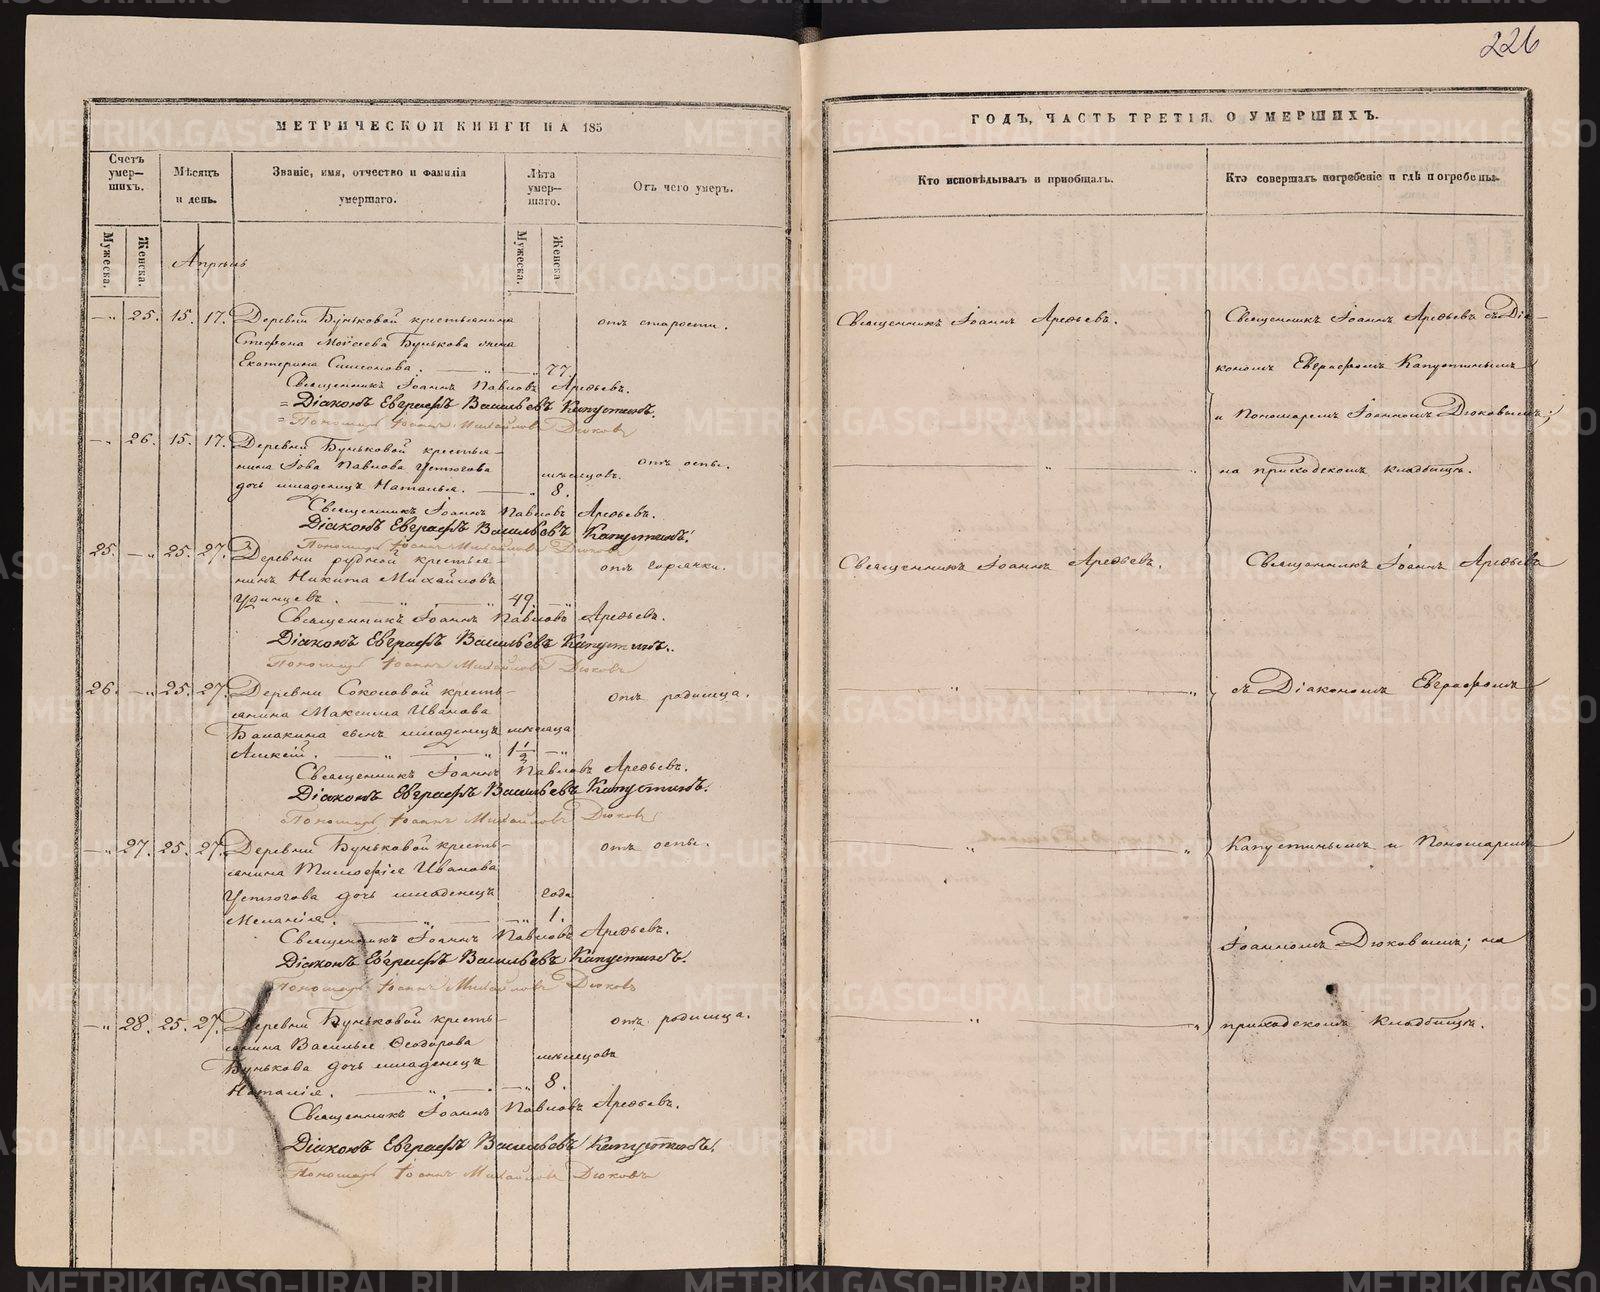 226
МЕТРИЧЕСКОЙ КНИГИ НА 185
Счетъ умер-шихъ.
Мѣсяцъ и день.
Званіе, имя, отчество и фамилія умершаго.
Лѣта умер-шаго.
Отъ чего умеръ.
Мужеска.
Женска.
Мужеска.
Женска
Апрѣль
— „ 25. 15. 17. Деревни Буньковой крестьянина
отъ старости.
Стефана Моѵсеева Бунькова жена
Екатерина Симеонова. — „ — 77.
Священникъ Іоаннъ Павловъ Арефьевъ.
= Діаконъ Евграфъ Васильевъ Капустинъ.
= Пономарь Іоаннъ Михайловъ Дюковъ
— „ 26. 15. 17. Деревни Буньковой крестья-
отъ оспы.
нина Іова Павлова Устюгова
мѣсяцовъ.
дочь младенецъ Наталья. — „ 8.
Священникъ Іоаннъ Павловъ Арефьевъ.
Діаконъ Евграфъ Васильевъ Капустинъ.
Пономарь Іоаннъ Михайловъ Дюковъ
25. — „ 25. 27. Деревни рудной крестья-
отъ горячки.
нинъ Никита Михайловъ
Удинцевъ. — „ — „ — 49. — „
Священникъ Іоаннъ Павловъ Арефьевъ.
Діаконъ Евграфъ Васильевъ Капустинъ.
Пономарь Іоаннъ Михайловъ Дюковъ
26. — „ 25. 27. Деревни Соколовой кресть-
отъ родимца.
янина Максима Иванова
Балакина сынъ младенецъ мѣсяца
Алексій. — „ — „ 1 1/2 — „
Священникъ Іоаннъ Павловъ Арефьевъ.
Діаконъ Евграфъ Васильевъ Капустинъ.
Пономарь Іоаннъ Михайловъ Дюковъ
— „ 27. 25. 27. Деревни Буньковой кресть-
отъ оспы.
янина Тимофея Иванова
Устюгова дочь младенецъ года
Меланія. — „ — „ 1.
Священникъ Іоаннъ Павловъ Арефьевъ.
Діаконъ Евграфъ Васильевъ Капустинъ.
Пономарь Іоаннъ Михайловъ Дюковъ
— „ 28. 25. 27. Деревни Буньковой кресть-
отъ родимца.
янина Василья Ѳеодорова
Бунькова дочь младенецъ мѣсяцовъ
Наталія. — „ — „ 8.
Священникъ Іоаннъ Павловъ Арефьевъ.
Діаконъ Евграфъ Васильевъ Капустинъ.
Пономарь Іоаннъ Михайловъ Дюковъ
ГОДЪ, ЧАСТЬ ТРЕТІЯ, О УМЕРШИХЪ.
Кто исповѣдывалъ и пріобщалъ.
Кто совершалъ погребеніе и гдѣ погребены.
Священникъ Іоаннъ Арефьевъ.
Священникъ Іоаннъ Арефьевъ съ Діа-
кономъ Евграфомъ Капустинымъ
и Пономаремъ Іоанномъ Дюковымъ;
— „ — „ на приходскомъ кладбищѣ.
Священникъ Іоаннъ Арефьевъ.
Священникъ Іоаннъ Арефьевъ
— „ — „ съ Діакономъ Евграфомъ
— „ — „ Капустинымъ и Пономаремъ
Іоанномъ Дюковымъ; на
— „ — „ приходскомъ кладбищѣ.
METRIKI.GASO-URAL.RU